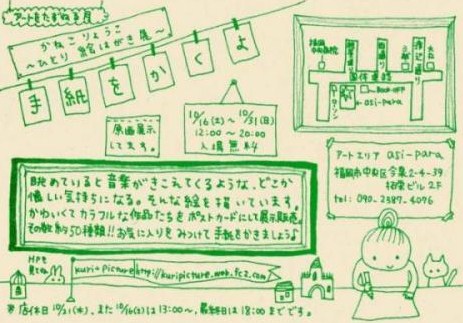 アートをたずねる展
かねこりょうこ
〜ひとり 絵はがき展〜
手紙をかくよ
原画展示
してます。
10/16(土)〜10/31(日)
12:00〜20:00
入場無料
国体道路
BOOK-OFF
asi-para
アートエリア asi-para
福岡市中央区今泉2-4-39
2F
tel: 090-2387-4096
眺めていると音楽がきこえてくるような、どこか
懐しい気持ちになる。そんな絵を描いています。
かわいくてカラフルな作品たちをポストカードにして展示販売。
その数約50種類!!お気に入りをみつけて手紙をかきましょう♪
HPも
見てね
kuri*picture http://kuripicture.web.fc2.com
※店休日10/21(木)、また10/16(土)は13:00〜、最終日は18:00までです。